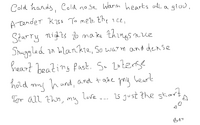 Cold hands, Cold nose warm hearts at a glow,
A tender kiss To melt the ice,
Starry nights to make things nice
Snuggled in blankie, So warm and dense
heart beating fast. So Intense
hold my hand, and take my heart
For all this, my love... is just the start